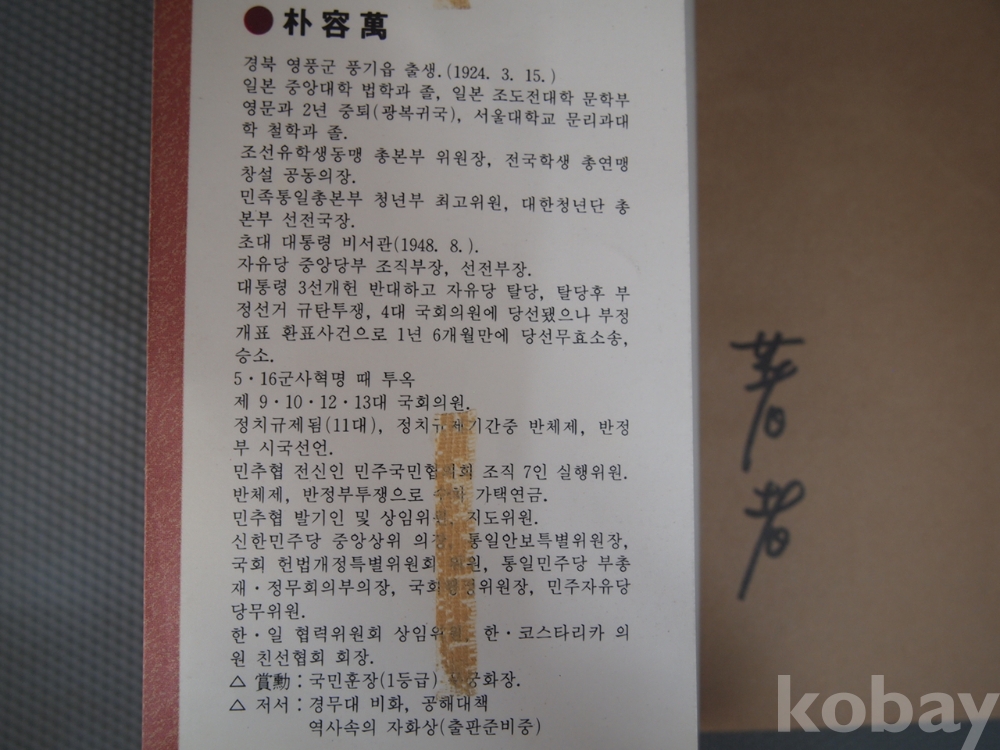 ● 朴容萬
경북 영풍군 풍기읍 출생.(1924. 3. 15.)
일본 중앙대학 법학과 졸, 일본 조도전대학 문학부
영문과 2년 중퇴(광복귀국), 서울대학교 문리과대
학 철학과 졸.
조선유학생동맹 총본부 위원장, 전국학생 총연맹
창설 공동의장.
민족통일총본부 청년부 최고위원, 대한청년단 총
본부 선전국장.
초대 대통령 비서관(1948. 8.).
자유당 중앙당부 조직부장, 선전부장.
대통령 3선개헌 반대하고 자유당 탈당, 탈당후 부
정선거 규탄투쟁, 4대 국회의원에 당선됐으나 부정
개표 환표사건으로 1년 6개월만에 당선무효소송,
승소.
5·16군사혁명 때 투옥
제 9·10·12·13대 국회의원.
정치규제됨(11대), 정치규제기간중 반체제, 반정
부 시국선언.
민추협 전신인 민주국민협의회 조직 7인 실행위원.
반체제, 반정부투쟁으로 수차 가택연금.
민추협 발기인 및 상임위원, 지도위원.
신한민주당 중앙상위 의장, 통일안보특별위원장,
국회 헌법개정특별위원회 위원, 통일민주당 부총
재·정무회의부의장, 국회 위원장, 민주자유당
당무위원.
한·일 협력위원회 상임위원, 한·코스타리카 의
원 친선협회 회장.
△ 賞勳 : 국민훈장(1등급) 무궁화장.
△ 저서 : 경무대 비화, 공해대책
역사속의 자화상(출판준비중)
著者
kobay